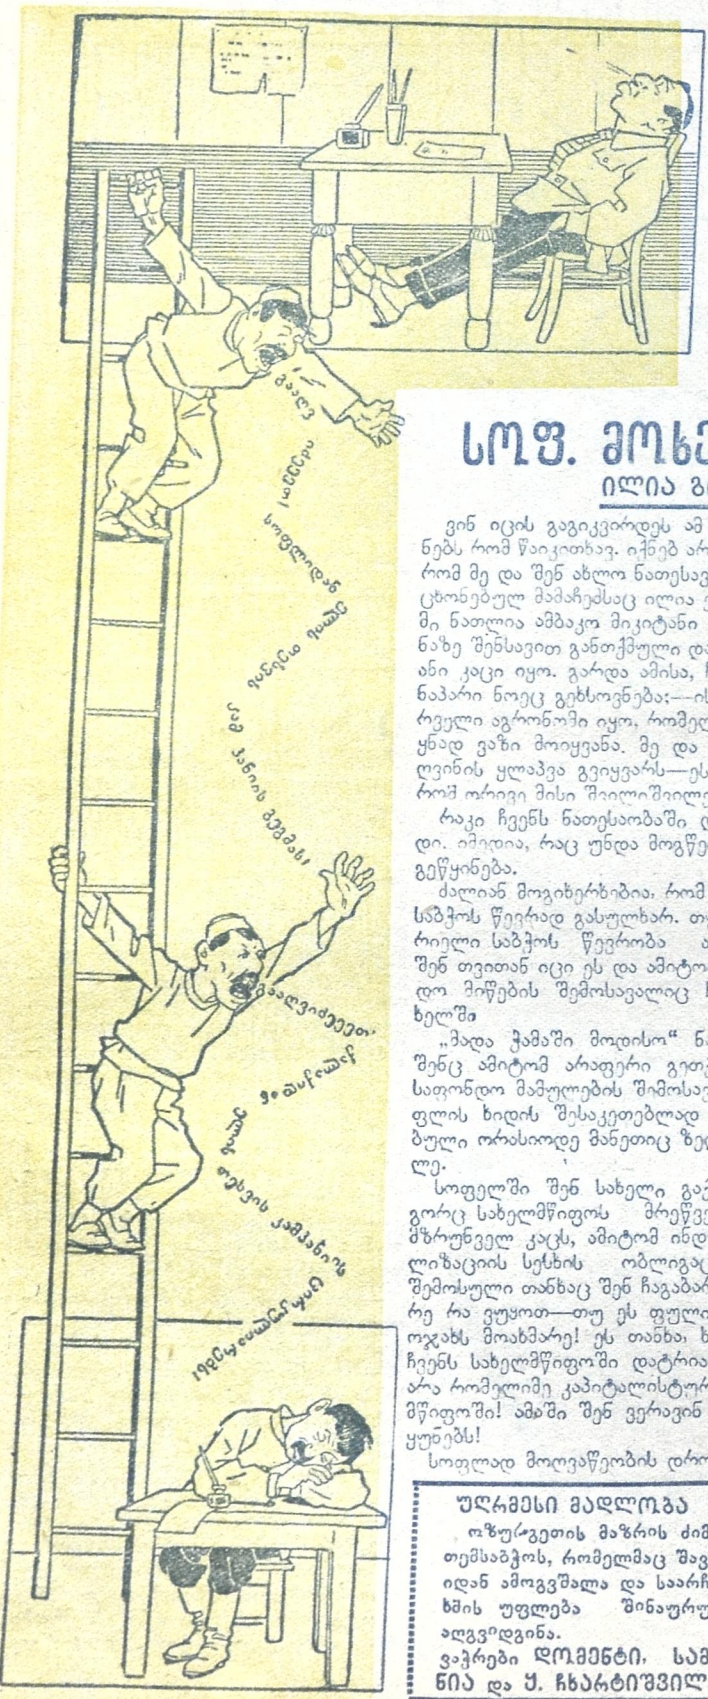 სოფ. მოხე
ილია გი
ვინ იცის გაგიკვირდეს ამ
ნებს რომ წაიკითხავ. იქნებ არ
რომ მე და შენ ახლო ნათესავ
ცხონებულ მამაჩემსაც ილია
ში ნათლია ამბაკო მიკიტანი
ნაზე შენსავით განთქმული და
ანი კაცი იყო. გარდა ამისა, ჩ
ნაპარი ნოეც გეხსოვნება;—ის
რველი აგრონომი იყო, რომელ
ყნად ვაზი მოიყვანა. მე და
ღვინის ყლაპვა გვიყვარს—ეს
რომ ორივე მისი შვილიშვილე
რაკი ჩვენს ნათესაობაში დ
დი. იმედია, რაც უნდა მოგწე
გეწყინება.
ძალიან მოგიხერხებია, რომ
საბჭოს წევრად გასულხარ. თუ
რიელი საბჭოს წევრობა ა
შენ თვითან იცი ეს და ამიტო
დო მიწების შემოსავალიც ჩ
ხელში
„მადა ჭამაში მოდისო“ ნა
შენც ამიტომ არაფერი გეთა
საფონდო მამულების შიმოსავ
ფლის ხიდის შესაკეთებლად
ბული ორასიოდე მანეთიც ზედ
ლე.
სოფელში შენ სახელი გაქ
გორც სახელმწიფოს მრეწვე
მზრუნველ კაცს, ამიტომ ინდ
ლიზაციის სესხის ობლიგაც
შემოსული თანხაც შენ ჩაგაბარ
რე რა ვუყოთ—თუ ეს ფული
ოჯახს მოახმარე! ეს თანხა, ხ
ჩვენს სახელმწიფოში დატრია
არა რომელიმე კაპიტალისტურ
მწიფოში! ამაში შენ ვერავინ
ყუნებს!
სოფლად მოღვაწეობის დრო
გააღვ
იძეეეთ!
სოფლიდან
თესვის
კამ პანიის გეგმას!
გააღვიძეეეთ'
თესვის კამპანიოს
უღრმესი მადლობა
ოზურგეთის მაზრის ძიმ
თემსაბჭოს, რომელმაც შავ
იდან ამოგვშალა და საარჩ
ხმის უფლება შინაურუ
აღგვიდგინა.
ვაჭრები დომენტი, სამ
ნია და ე. ჩხარტიშვილ